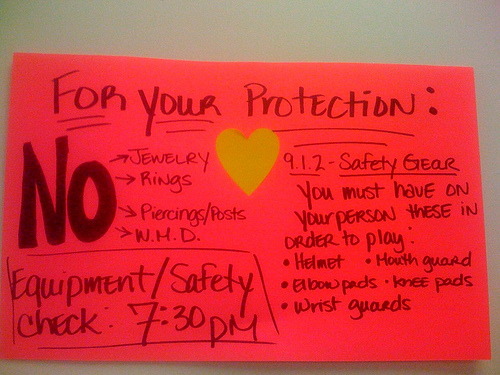 FOR YOUR PROTECTION:
NO
→ JEWELRY
→ Rings
→ Piercings/Posts
→ W.M.D.
Equipment/Safety
check: 7:30 PM
9.1.2 - Safety GEAR
You must HAVE ON
YOUR PERSON THESE IN
ORDER to play:
• Helmet • Mouth guard
• Elbow pads • knee pads
• Wrist guards